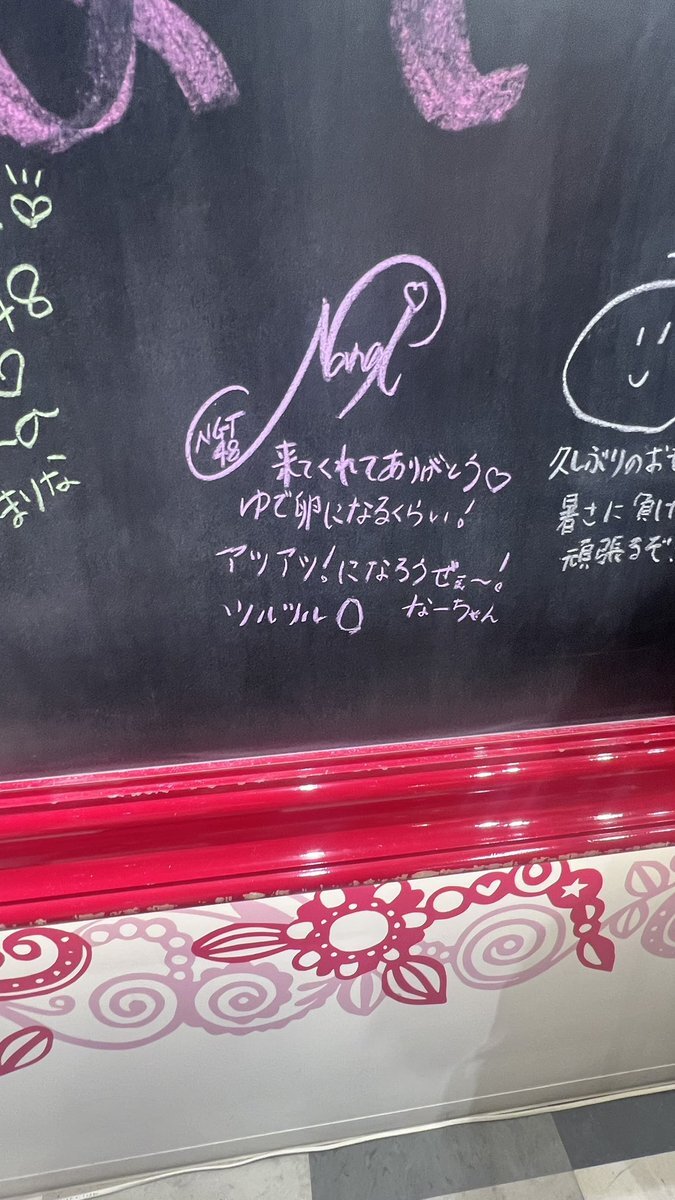 NGT
48
来てくれてありがとう♡
ゆで卵になるくらい!
アツアツ!になろうぜぇ〜!
ツルツル
なーちゃん
48
まりな
久しぶりのおも
暑さに負け
頑張るぞ